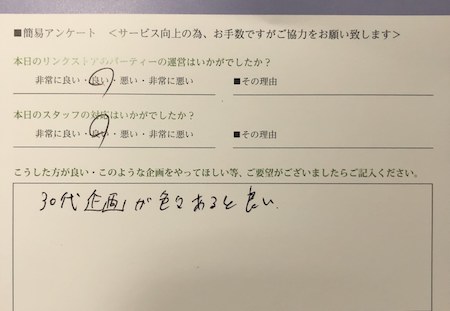 ■簡易アンケート <サービス向上の為、お手数ですがご協力をお願い致します>
本日のリンクストアのパーティーの運営はいかがでしたか?
非常に良い・良い・悪い・非常に悪い ■その理由
本日のスタッフの対応はいかがでしたか?
非常に良い・良い・悪い・非常に悪い ■その理由
こうした方が良い・このような企画をやってほしい等、ご要望がございましたらご記入ください。
30代企画が色々あると良い.